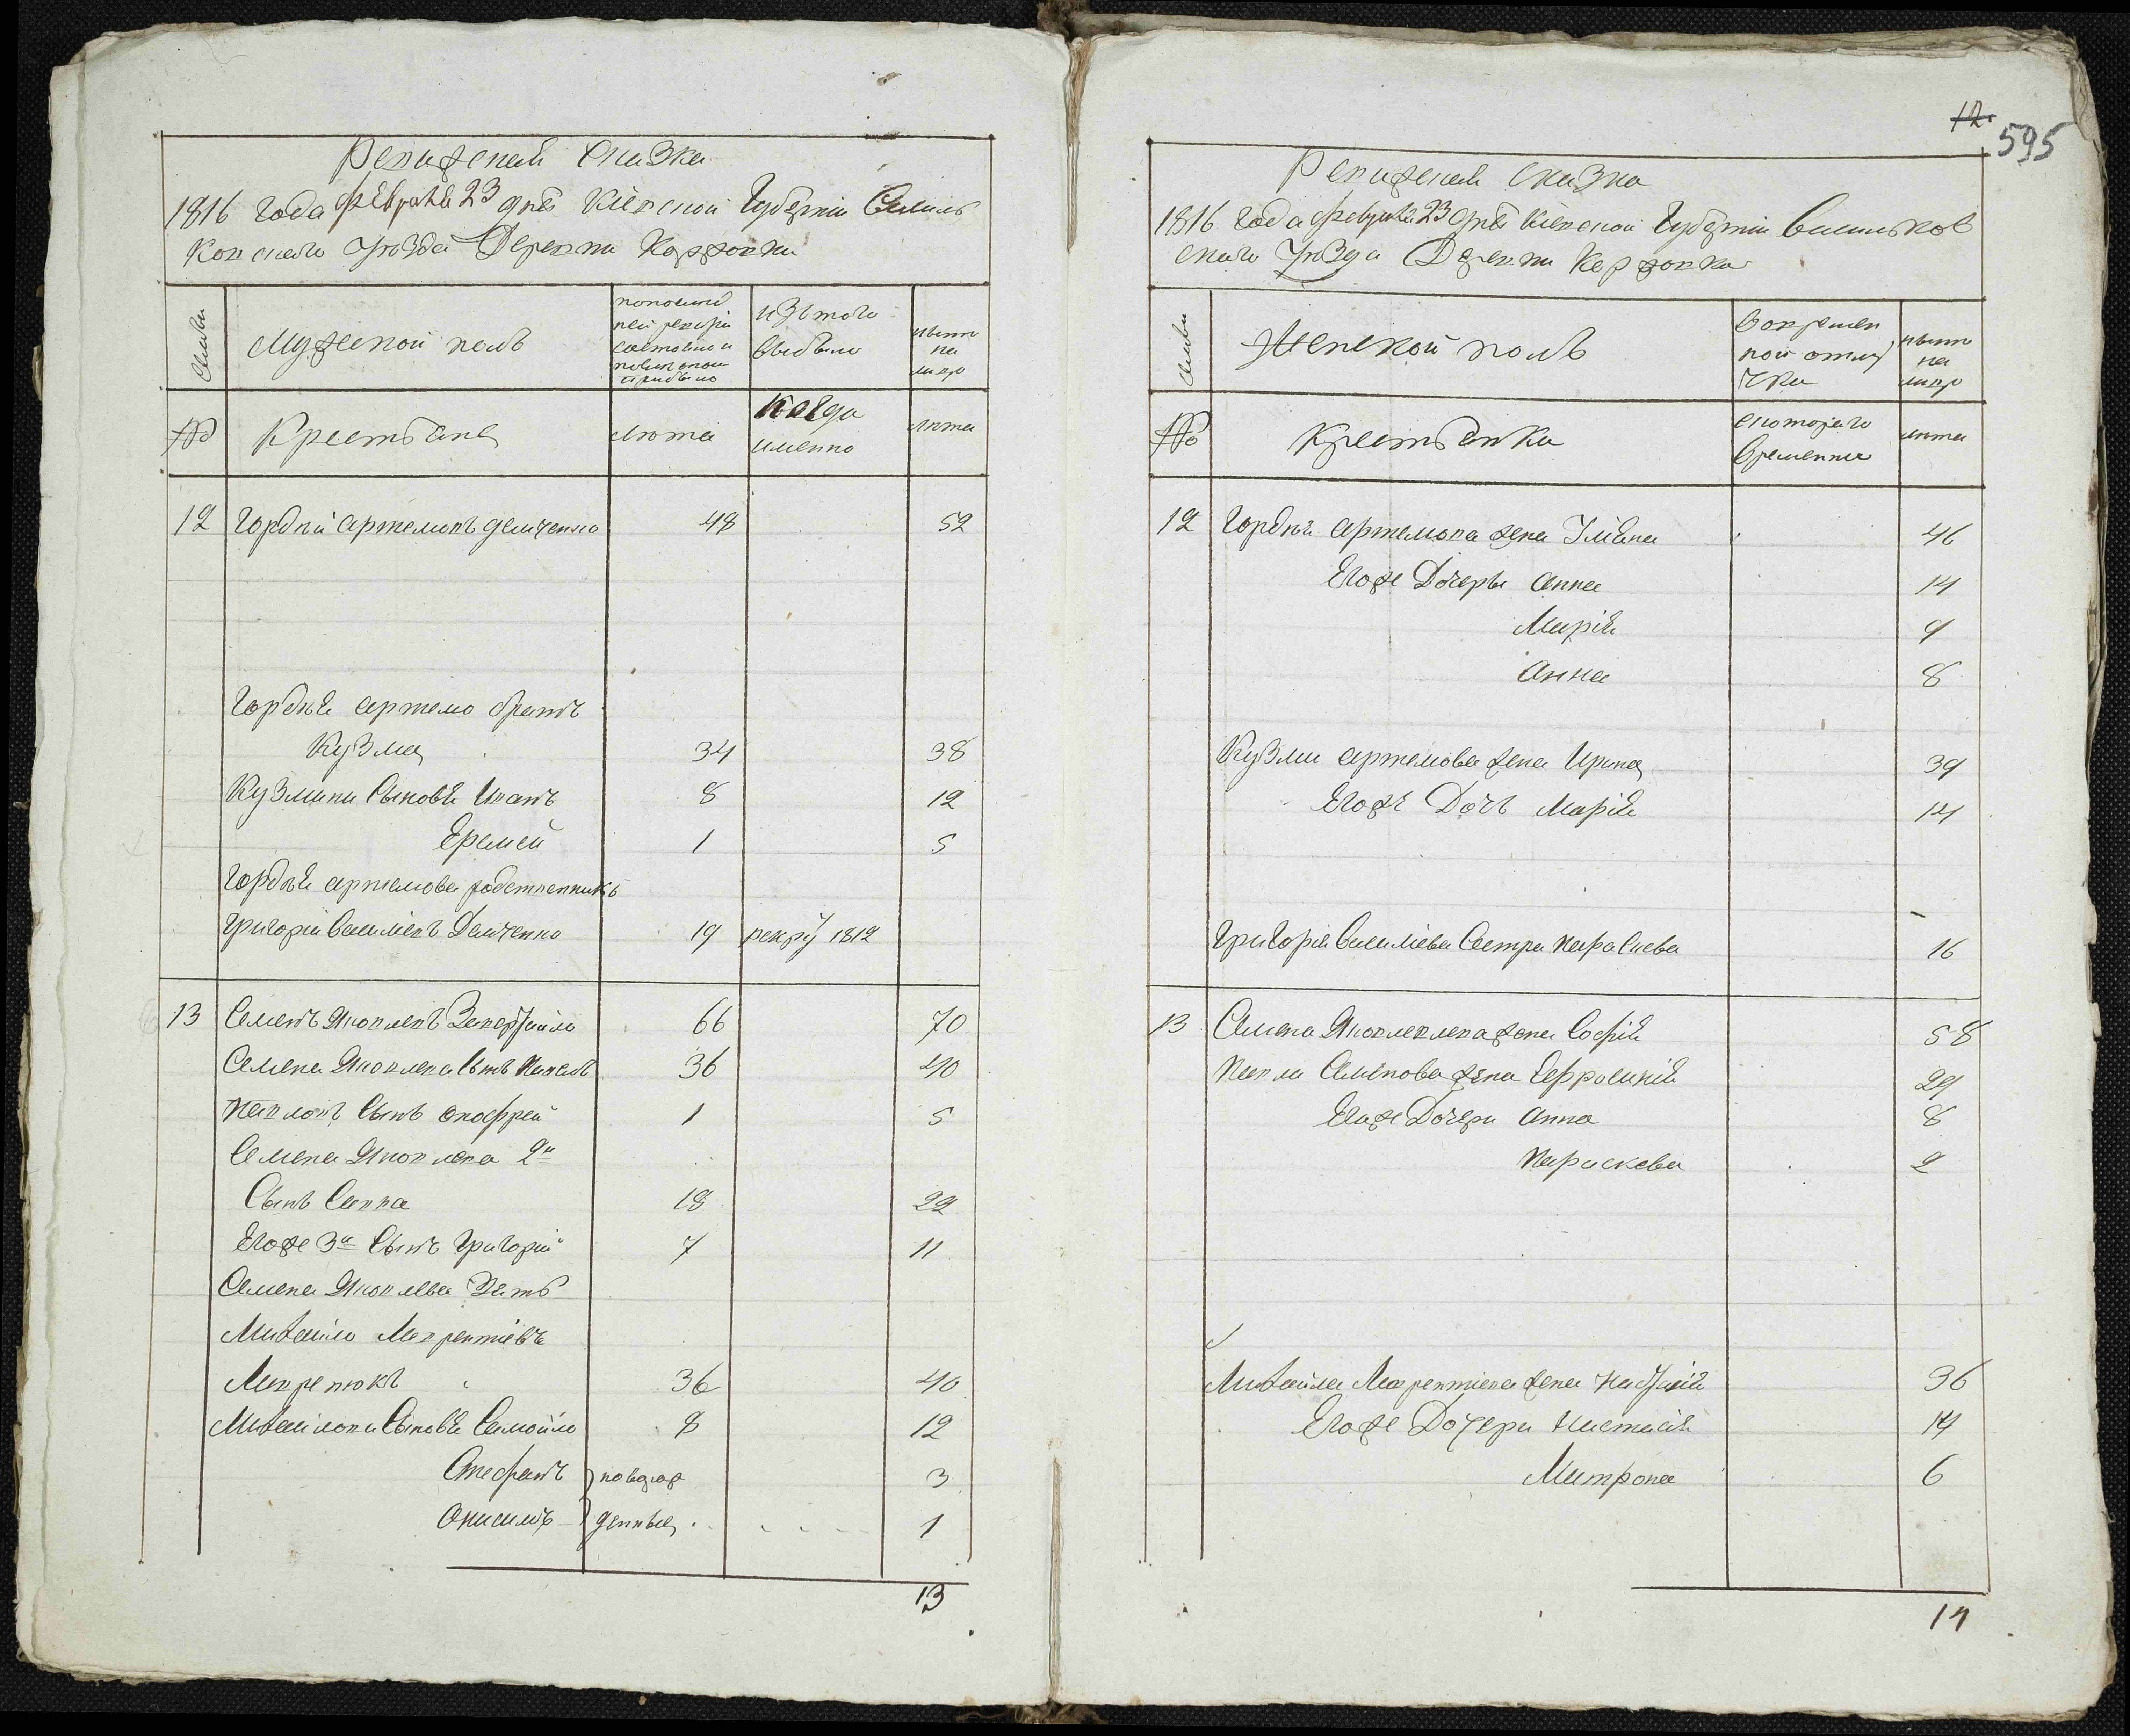 Ревижская сказка
1816 года февраля 23 дня Кіевской Губерніи Василь
ковскаго Уѣзда Деревни
Семьи
Мужеской полъ
по последней ревизіи состояло и после оной прибыло
изъ того выбыло
нынѣ на лицо
№
Крестьяне
лѣта
когда именно
лѣта
12 Гордѣй Артемовъ Демченко 48 52
Гордѣя Артемо братъ
Кузма 34 38
Кузмини Сыновья Иванъ 8 12
Еремей 1 5
Гордѣя Артемова родственникъ
Григорій Василіевъ Демченко 19 рекру 1812
13 Семенъ Яковлевъ 66 70
Семена Яковлева Сынъ Павелъ 36 40
Павловъ Сынъ Онофрей 1 5
Семена Яковлева 2й
Сынъ Савка 18 22
Егоже 3й Сынъ Григорій 7 11
Семена Яковлева Зять
Михайло Лаврентіевъ
36 40
Михайлови Сыновья Самойло 8 12
Стефанъ новорож 3
Онисимъ денныя 1
13
12
595
Ревижская сказка
1816 года февраля 23 дня Кіевской Губерніи Васильков
скаго Уѣзда Деревни
Семьи
Женской полъ
во временной отлучки
нынѣ на лицо
№
Крестьянки
скотораго времянни
лѣта
12 Гордѣя Артемова жена 46
Егоже Дочеры Анна 14
Марія 9
Анна 8
Кузми Артемова жена Ирина 39
Егоже Дочь Марія 14
Григорія Василіева Сестра Парасκева 16
13 Семена Яковлевлева жена Софія 58
Павла Семенова жена Ефросинія 29
Егоже Дочери Анна 8
Параскева 2
Михайла Лаврентіева жена 36
Егоже Дочери Настасія 14
Матрона 6
14